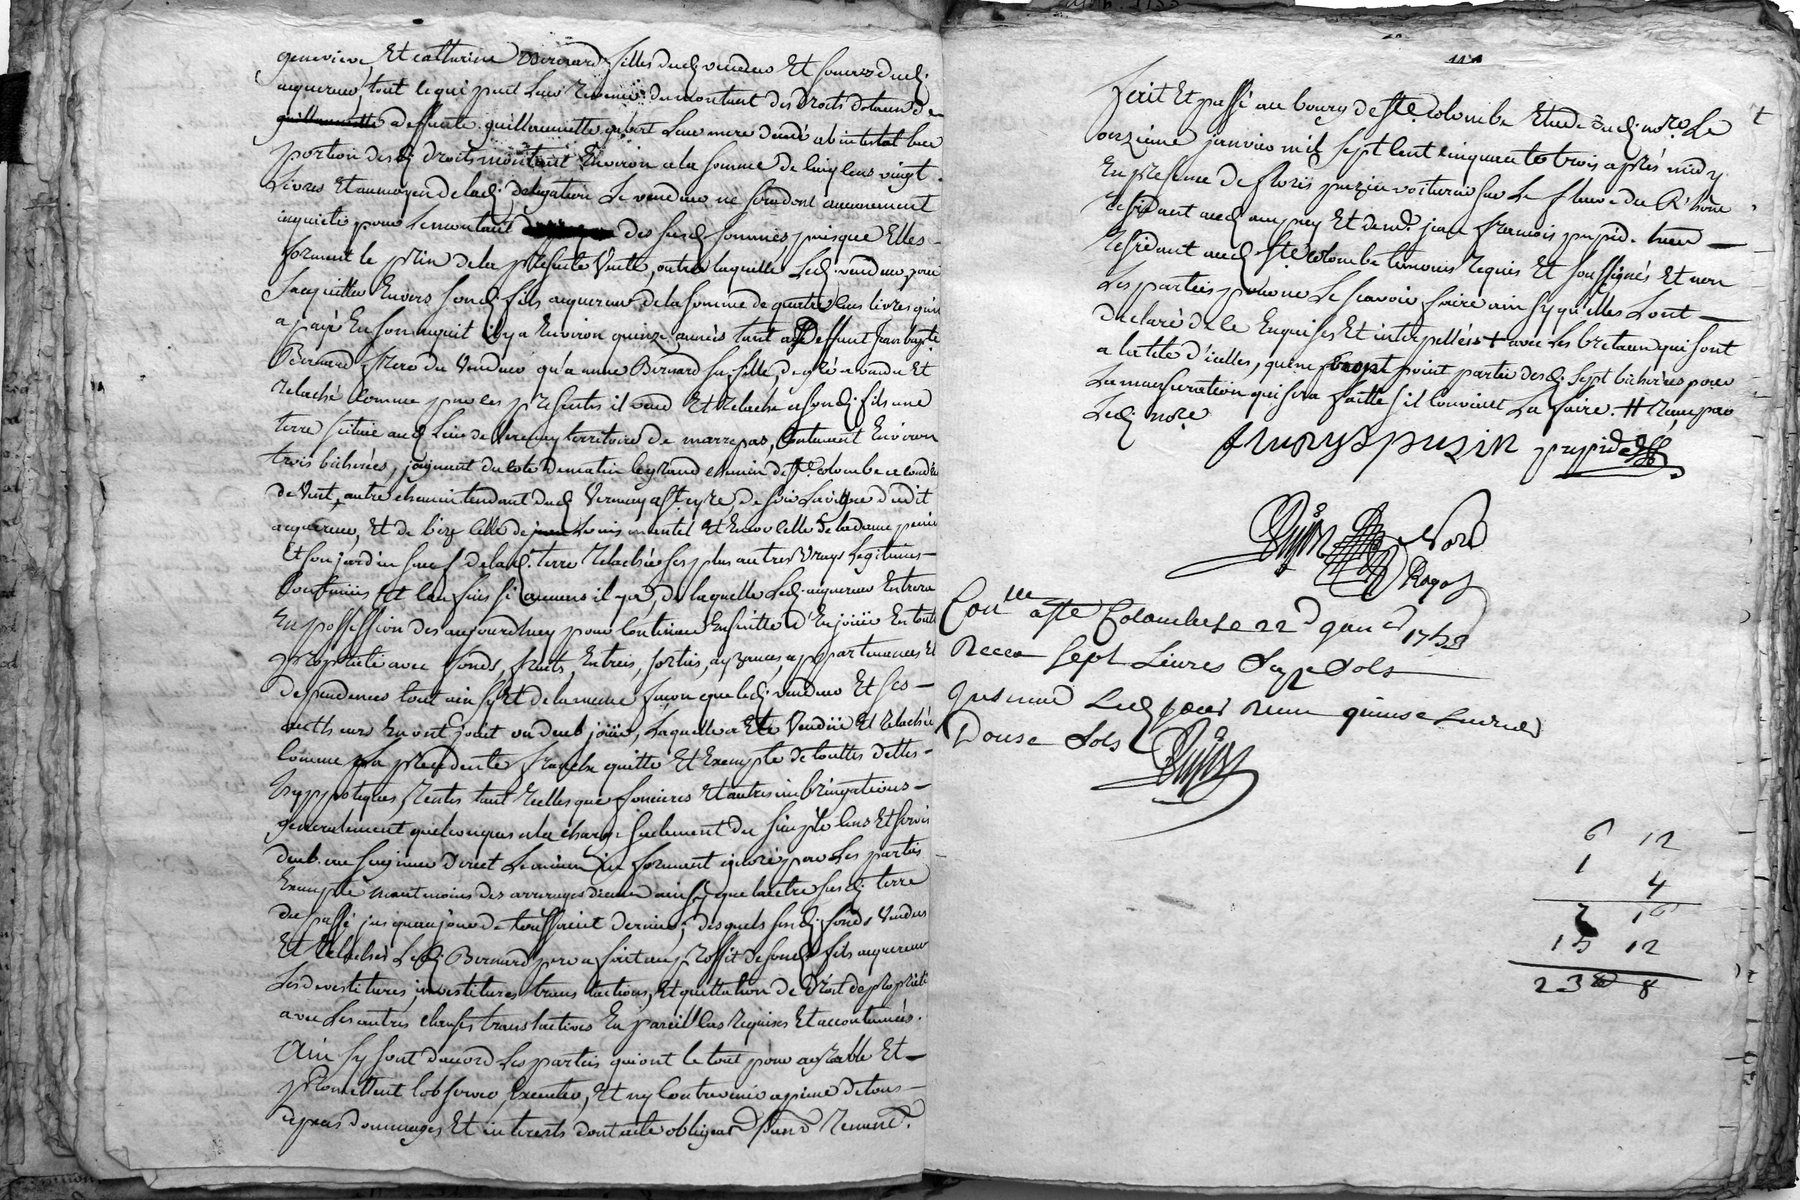 genevieve Et catherine Bernard filles dud. vendeur Et soeurs dud.
acquereur, tout ce qui peut leur revenir du montant des droits de
guillaumette a deffunte guillaumette gobert leur mere decedée ab intestat leur
portion desd. droits montant Environ a la somme de cinq cens vingt
Livres Et au moyen de lad. delegation Le vendeur ne aucunement
inquieté pour Le montant des susd. sommes puisque Elles
forment le prix de la presente Vente, outre laquelle Led. vendeur pour
Sacquitter Envers sond. fils acquereur de la somme de quatre cens livres qu'il
a payé En son acquit il y a Environ quinze années tant a deffunt Jean baptiste
Bernard frere du Vendeur qu'a anne Bernard sa fille, de gré a vendu Et
relaché comme par ces presentes il vend Et relache a sond. fils une
terre scituée aud. Lieu de Verenay territoire de marrepas, Contenant Environ
trois bicherées, joignant du coté de matin le grand chemin de Ste. colombe a condrieu
de Vent, autre chemin tendant dud. Vernay a St. cyre, de soir La dudit
acquereur, Et de bize celle de Louis mantel Et Encor celle de la dame
Et son jardin sauf de lad. terre relachée ses plus autres Vrays Legitimes
Confins Et Confins si aucuns il y a, de laquelle Led. acquereur Entrera
En possession des aujourdhuy pour Continuer Ensuitte d'En jouir En toute
proprieté avec fonds, fruits, Entrées, sorties, ayzances, appartenances Et
dependences tout ainsy Et de la meme façon que led. vendeur Et ses
autheurs En ont jouit ou deub jouir, Laquelle a Eté Vendue Et relachée
comme la precedente franche quitte Et Exempte de touttes dettes
hyppoteques, Rentes tant reelles que foncieres Et autres imbringations
generalement quelconques a la charge seulement du simple cens Et servis
deub au seigneur Direct Le ignoré par Les parties
Exempte neantmoins des arrerages d'iceux ainsy que laditte susd. terre
du passé jusquau jour de toussaint dernier, desquels susd. fonds Vendus
Et relachés Led. Bernard pere a fait au proffit de sond. fils acquereur
Les devestitures, investitures translactions, Et quittation de Droit de proprieté
avec Les autres clauses translactives En pareil cas requises Et accoutumées.
Ainsy sont d'accord Les parties qui ont le tout pour agreable Et
promettent l'observer, Executer, Et ny Contrevenir a peine de tous
depens dommages Et interests dont acte oblige. Renon.
fait Et passé au bourg de Ste Colombe Etude dud. nore. Le
onzième janvier mil sept cent cinquante trois après midy
En presence de fleurs puzin voiturier sur Le fleuve du Rhône
residant aud. ampuy Et de mr. jean francois
residant aud. Ste colombe temoins requis Et soussignés Et non
Les parties pour ne Le scavoir faire ainsy qu'elles L'ont
declaré de ce Enquises Et interpellées + avec Les qui sont
a la tete d'icelles, qui ne feront point partie desd. sept bicherées pour
La mensuration qui sera faitte s'il convient La faire. # par
Led. nore.
fleurys puzin
Conlle a Ste Colombe le 22 janer 1753
Receu Sept Livres Seize Sols
quinse Livres
Douse Sols
6 12
1 4
7 16
15 12
23 8